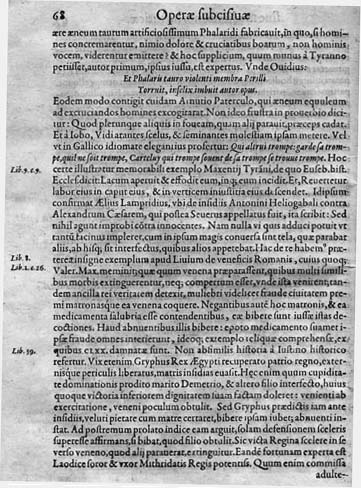 68 Operæ subcisiuæ
ære æneum taurum artificiosissimum Phalaridi fabricauit, in quo, si homi-
nes concremarentur, nimio dolore & cruciatibus boatum, non hominis
vocem, viderentur emittere? & hoc supplicium, quum munus à Tyranno
petiisset, autor primum, ipsius iussu, est expertus. Vnde Ouidius:
Et Phalaris tauro violenti membra Perilli
Torruit, infelix imbuit autor opus.
Eodem modo contigit cuidam Arnutio Paterculo, qui æneum equuleum
ad excruciandos homines excogitarat. Non ideo frustra in prouerbio dici-
tur: Quod plerunque aliquis in foueam, quam alij parauit, præceps cadat.
Et à Iobo, Vidi arantes scelus, & seminantes molestiam ipsam metere. Vel
vt in Gallico idiomate elegantius profertur: Qui al trui trompe: garde sa trom-
pe, qu'il ne soit trompe, Car tel uy qui trompe souuent de sa trompe se trouue trompe. Hoc
Lib. 9. c. 9. certe illustratur memorabili exemplo Maxentij Tyranni, de quo Euseb. hist.
Ecclesi dicit: Lacum aperuit & effodit eum, inq; eum incidit. Et, Reuertetur
labor eius in caput eius, & in verticem iniustitia eius descendet. Idipsum
confirmat Ælius Lampridius, vbi de insidiis Antonini Heliogabali contra
Alexandrum Cæsarem, qui postea Seuerus appellatus fuit, ita scribit: Sed
nihil agunt improbi cótra innocentes. Nam nulla vi quis adduci potuit vt
tantũ facinus impleret, cum in ipsum magis conuersa sint tela, quæ parabat
aliis, ab hisq; sit interfectus, quibus alios appetebat. Hac de re habem⁹ præ-
Lib. 8. terea insigne exemplum apud Liuium de veneficis Romanis, cuius quoq;
Lib. 2. c. 26. Valer. Max. meminit; quæ quum venena præparassent, quibus multi simili-
bus morbis extinguerentur, neq; compertum esset, vnde ista venirent, tan-
dem ancilla rei veritatem detexit, muliebri videlicet fraude ciuitatem pre-
mi matronasque ea venena coquere. Negantibus autẽ hoc matronis, & ea
medicamenta salubria esse contendentibus, ex bibere sunt iussæ istas de-
coctiones. Haud abnuentibus illis bibere: epoto medicamento suamet i-
psæ fraude omnes interierunt, ideoq; exemplo reliquæ comprehensæ, ex
Lib. 39. quibus clxx. damnatæ sunt. Non absimilis historia à Iustino historico
refertur. Vix etenim Gryphus Rex Ægypti recuperato patrio regno, exter-
nisque periculis liberatus, matris insidias euasit. Hęc enim quum cupidita-
te dominationis prodito marito Demetrio, & altero filio interfecto, huius
quoque victoria inferiorem dignitatem suam factam doleret: venienti ab
exercitatione, veneni poculum obtulit. Sed Gryphus prædictis iam ante
insidiis, veluti pietate cum matre certaret, bibere ipsam iubet; abnuenti in-
stat. Ad postremum prolato indice eam arguit, solam defensionem sceleris
superesse affirmans, si bibat, quod filio obtulit. Sic victa Regina scelere in se
verso veneno, quod alij parauerat, extinguitur. Eandẽ fortunam experta est
Laodice soror & vxor Mithridatis Regis potentis. Quum enim commissa
adulte-